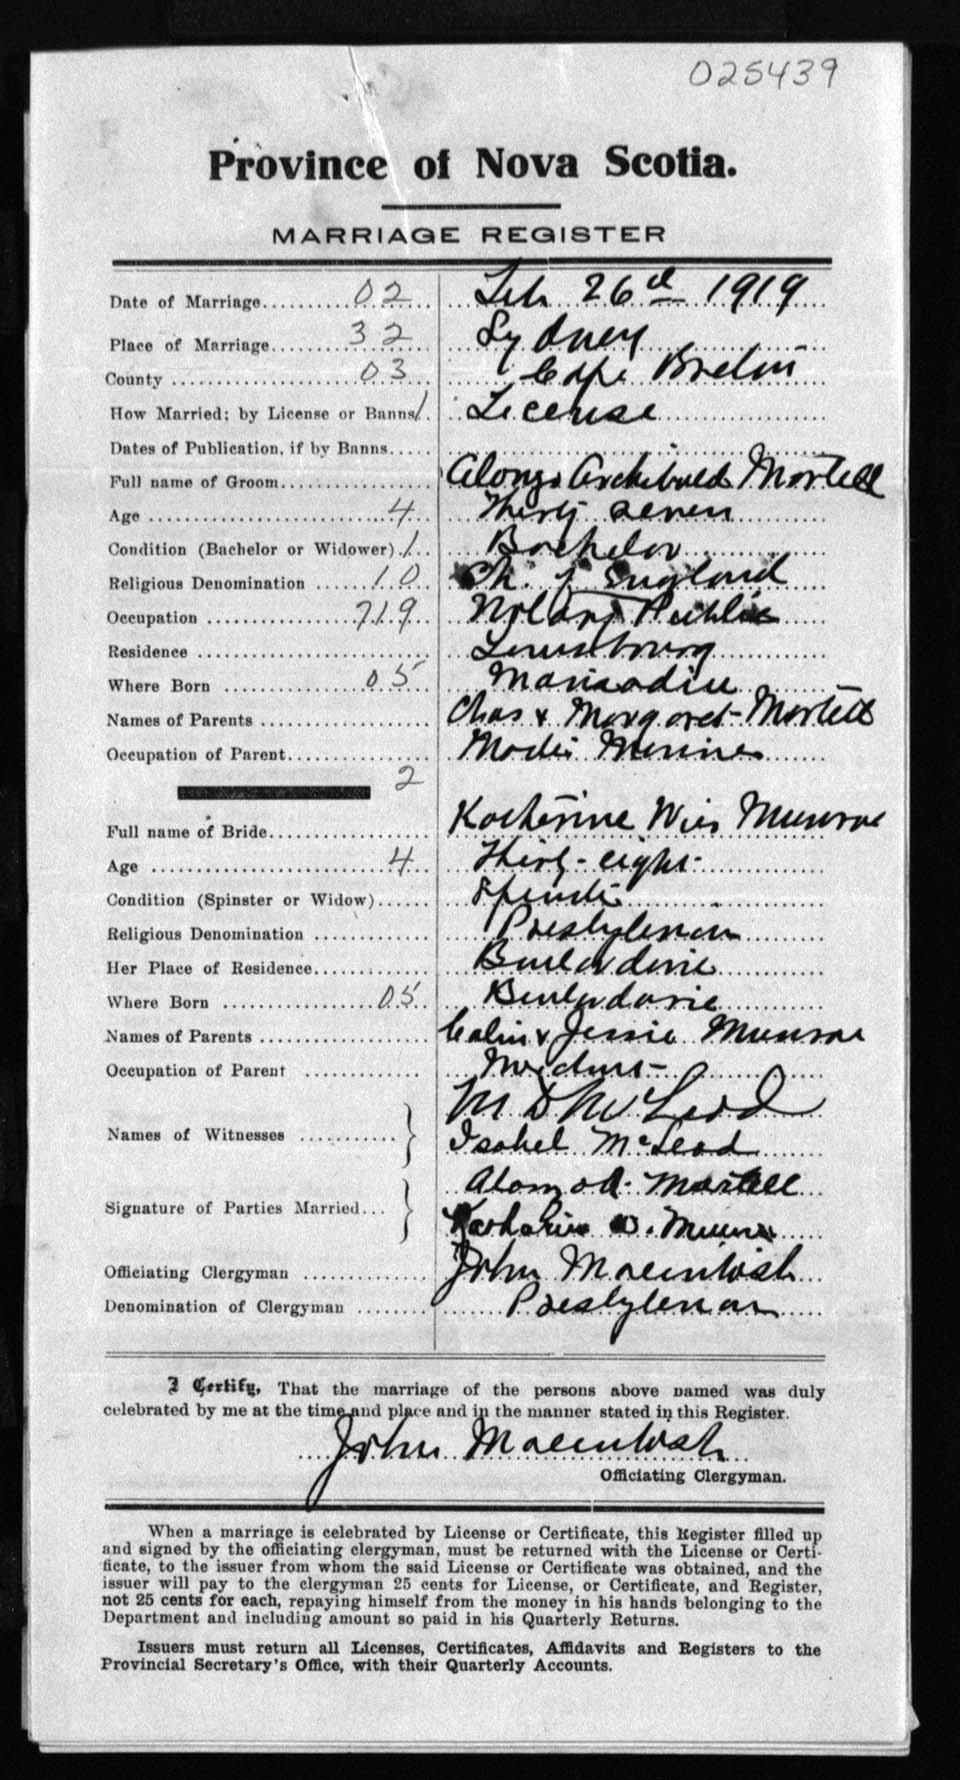 025439
Province of Nova Scotia.
MARRIAGE REGISTER
Date of Marriage..........02.. Feb 26th 1919
Place of Marriage........32.. Sydney
County ....................03.. Cape Breton
How Married; by License or Banns 1. License
Dates of Publication, if by Banns.....
Full name of Groom.................. Alonzo Archibald Martell
Age ...........................4.. Thirty seven
Condition (Bachelor or Widower).1.. Bachelor
Religious Denomination ......10.. Ch. of England
Occupation ................719.. Notary Public
Residence .......................... Louisbourg
Where Born ................05.. Mainadieu
Names of Parents .................. Chas & Margaret Martell
Occupation of Parent................ Master Mariner
2
Full name of Bride.................. Katherine Wier Munroe
Age ...........................4.. Thirty-eight
Condition (Spinster or Widow)...... Spinster
Religious Denomination ............. Presbyterian
Her Place of Residence............. Boularderie
Where Born ................05.. Boularderie
Names of Parents .................. Colin & Jessie Munroe
Occupation of Parent .............
Names of Witnesses ........... } M D McLeod
Isabel McLeod
Signature of Parties Married... } Alonzo A. Martell
Katharine W. Munro
Officiating Clergyman .............. John Macintosh
Denomination of Clergyman ........ Presbyterian
I Certify, That the marriage of the persons above named was duly
celebrated by me at the time and place and in the manner stated in this Register.
John Macintosh
Officiating Clergyman.
When a marriage is celebrated by License or Certificate, this Register filled up
and signed by the officiating clergyman, must be returned with the License or Certi-
ficate, to the issuer from whom the said License or Certificate was obtained, and the
issuer will pay to the clergyman 25 cents for License, or Certificate, and Register,
not 25 cents for each, repaying himself from the money in his hands belonging to the
Department and including amount so paid in his Quarterly Returns.
Issuers must return all Licenses, Certificates, Affidavits and Registers to the
Provincial Secretary's Office, with their Quarterly Accounts.